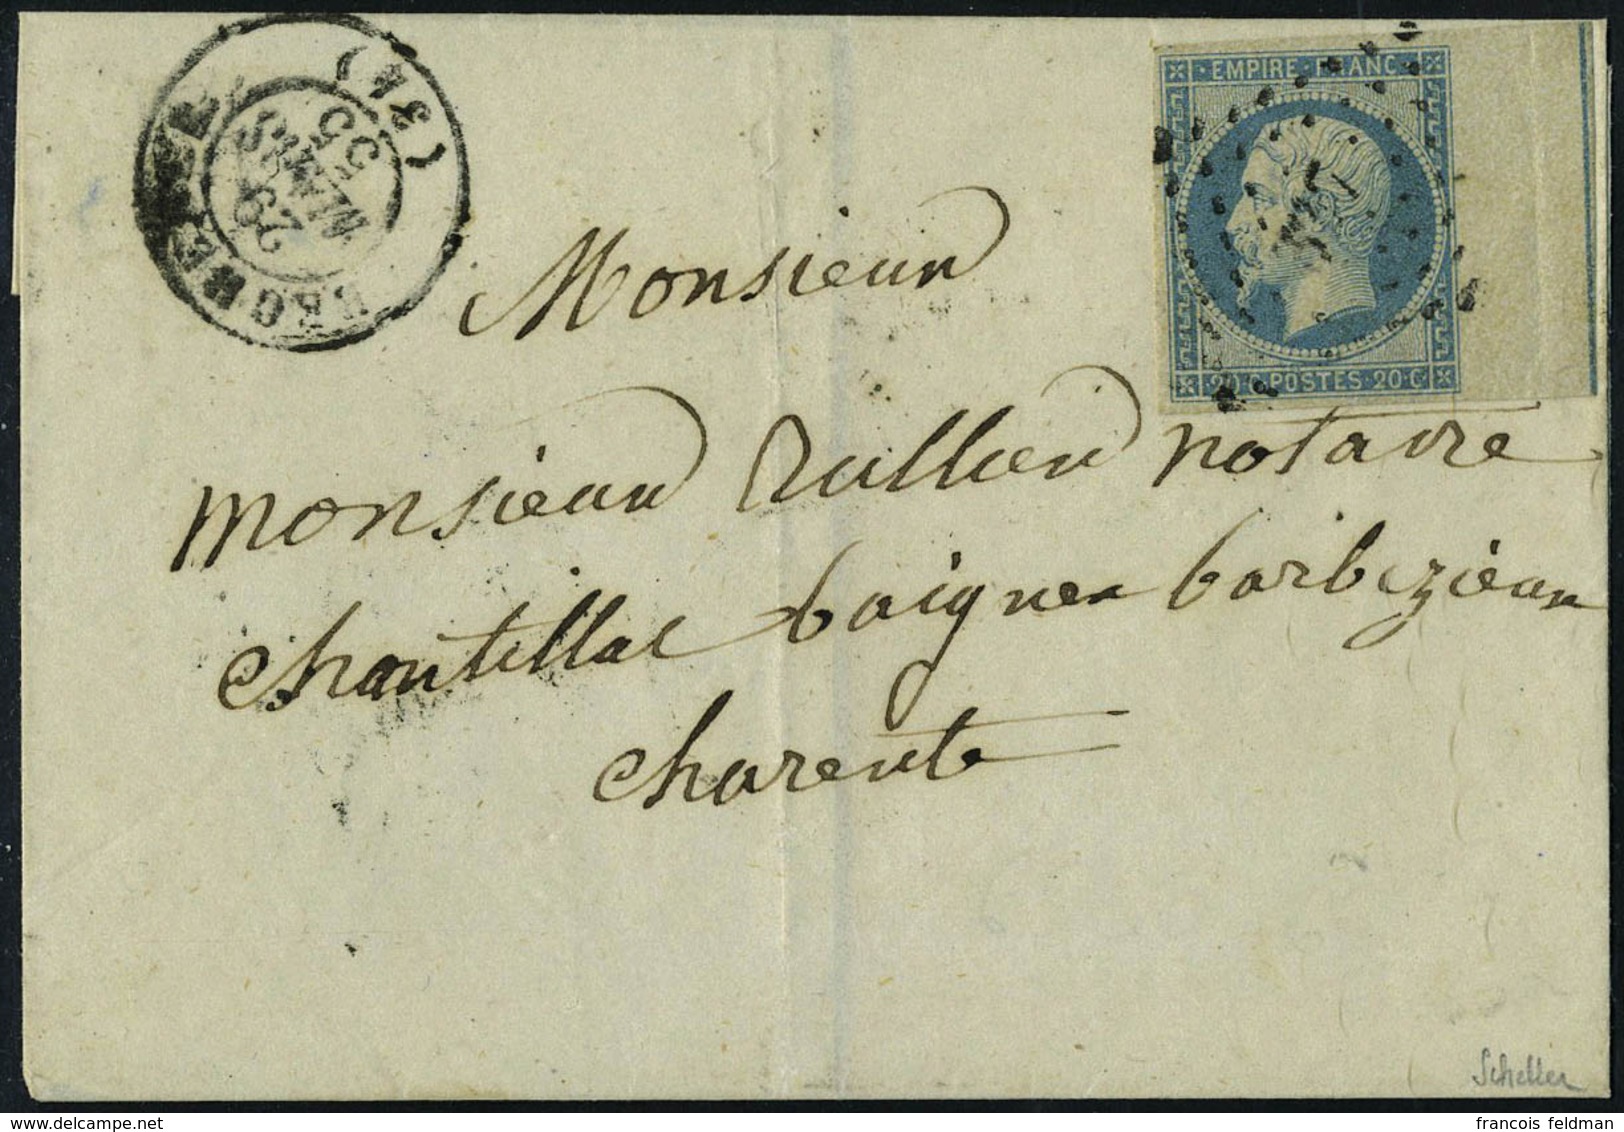 (34)
29
MARS
55
EMPIRE FRANC
20·C·POSTES·20·C
Monsieur
Monsieur notaire
chantillac baignes barbezieux
charente
Scheller
francois feldman